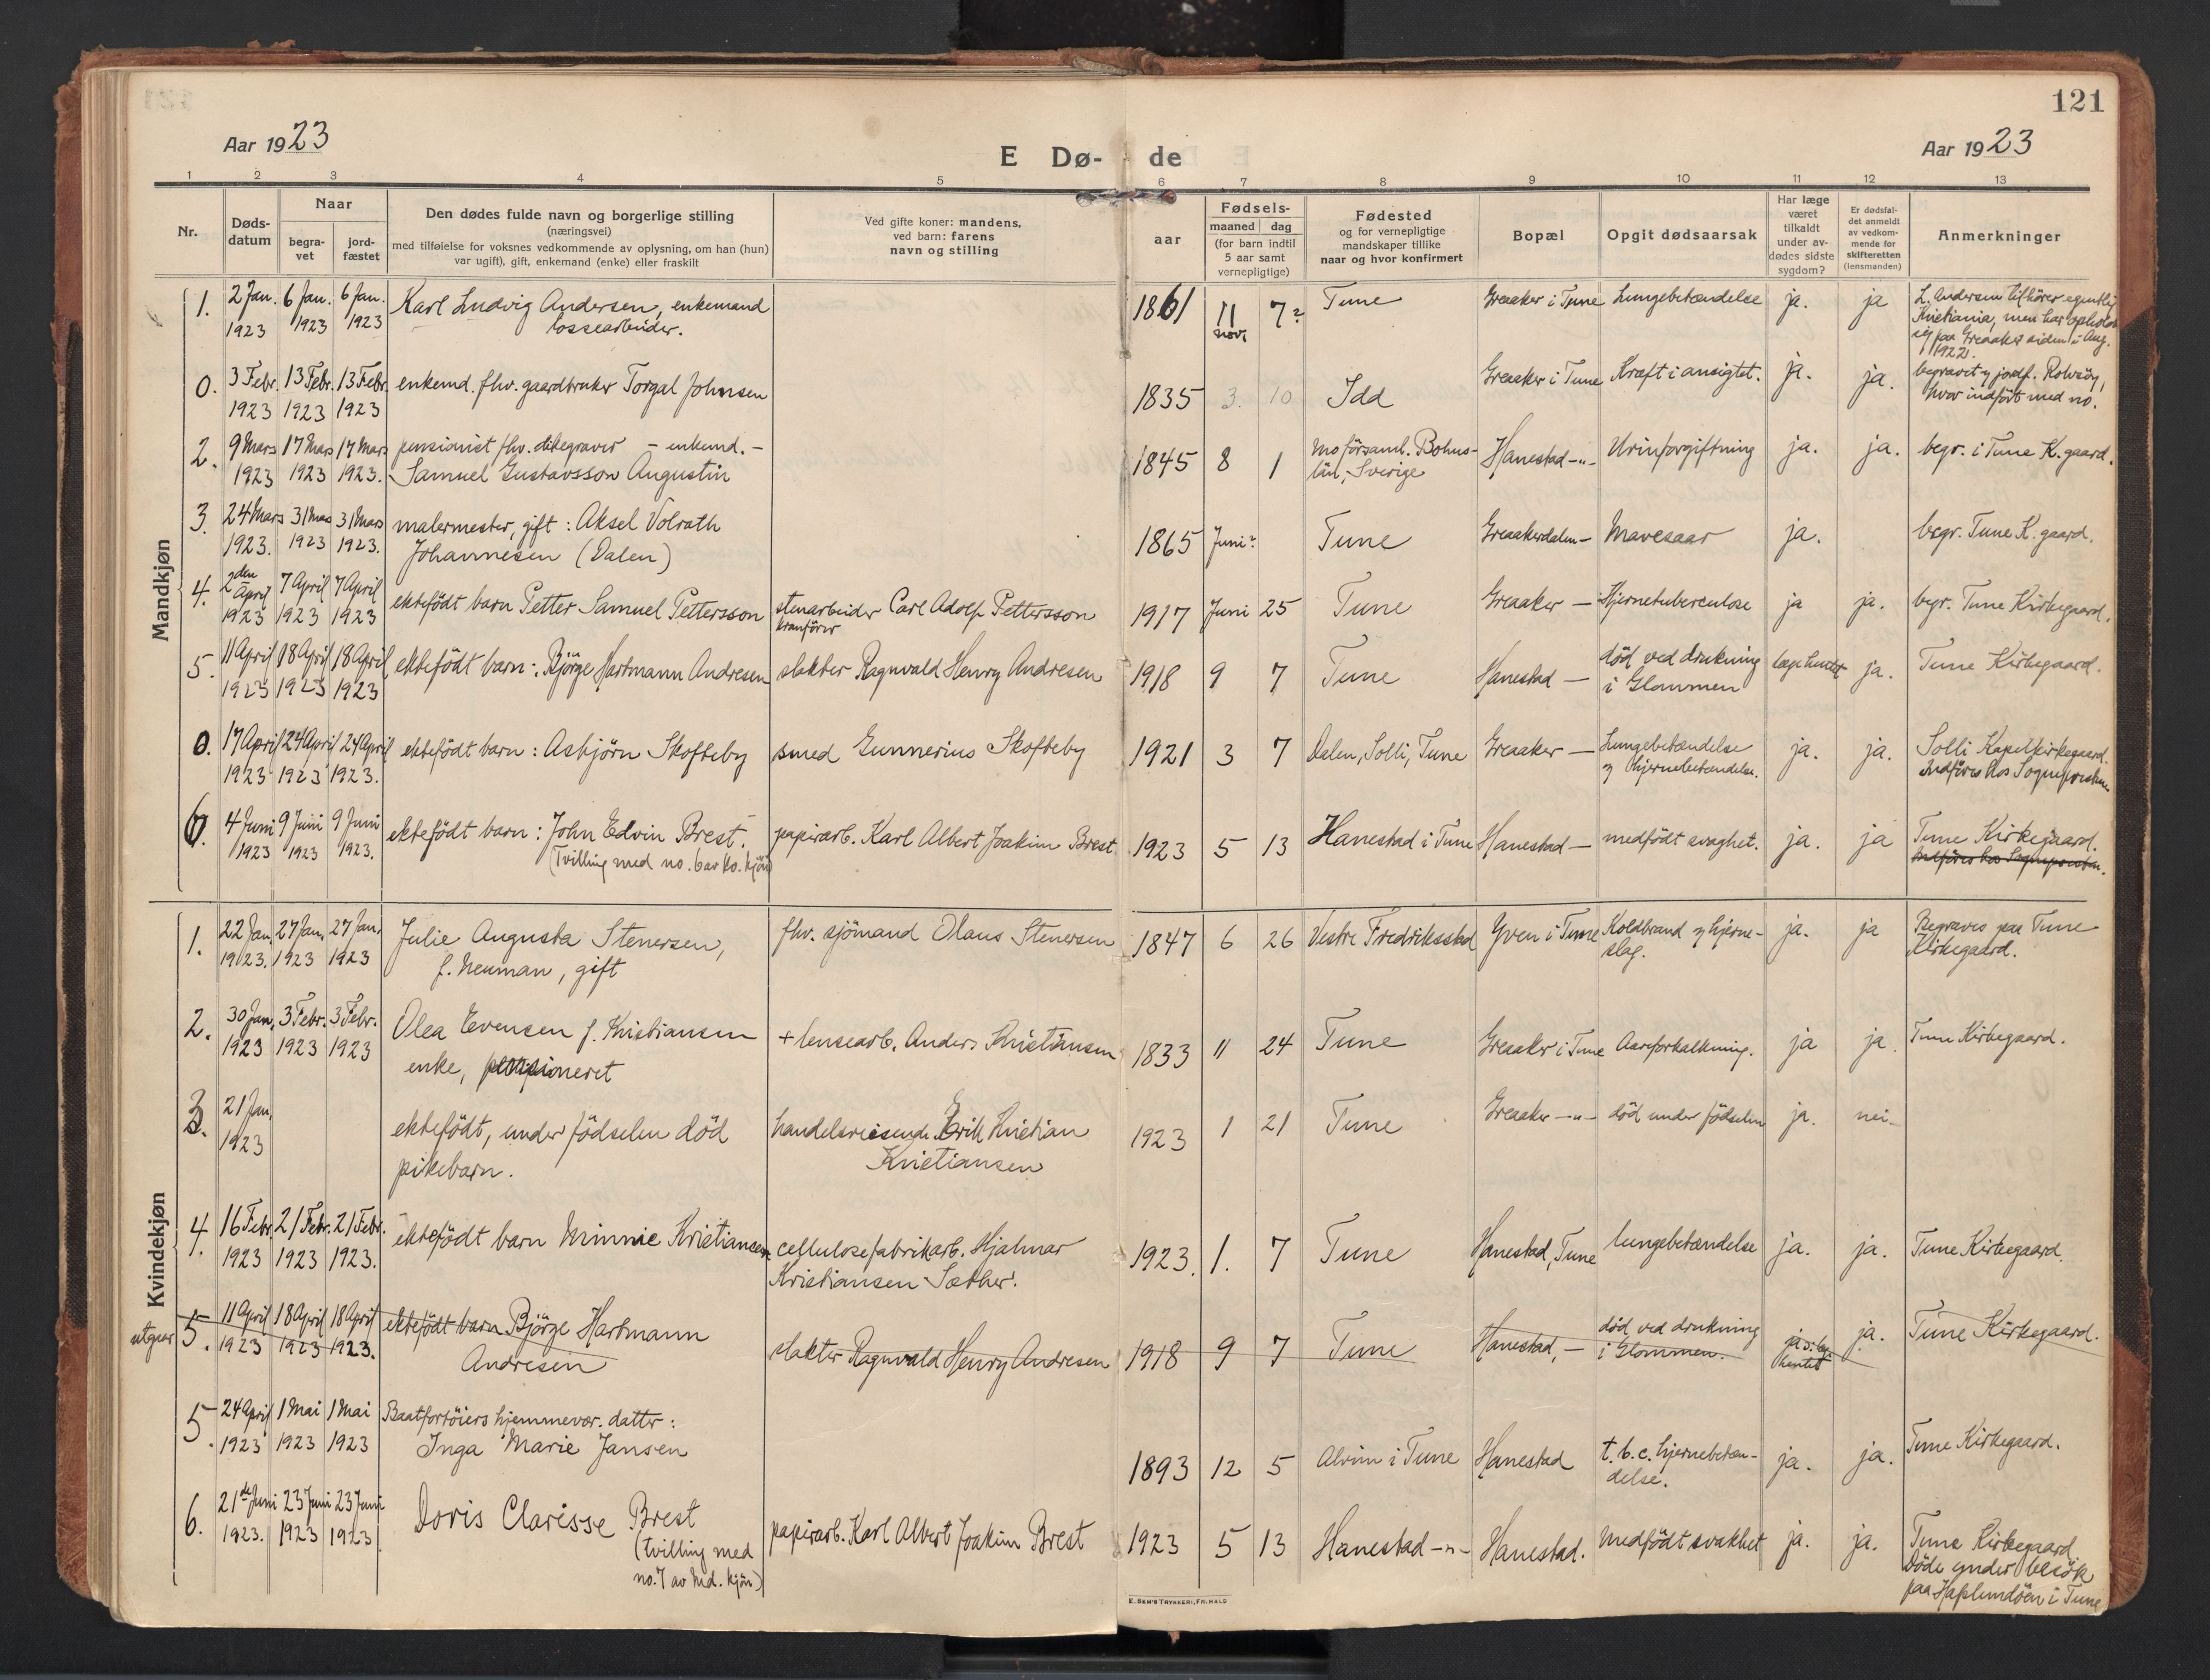 121
Aar 1923
E Dø- de
Aar 1923
1 2 3 4 5 6 7 8 9 10 11 12 13
Nr.
Døds-
datum
Naar
begra-
vet
jord-
fæstet
Den dødes fulde navn og borgerlige stilling
(næringsvei)
med tilføielse for voksnes vedkommende av oplysning, om han (hun)
var ugift), gift, enkemand (enke) eller fraskilt
Ved gifte koner: mandens,
ved barn: farens
navn og stilling
Fødsels-
aar
maaned dag
(for barn indtil
5 aar samt
vernepligtige)
Fødested
og for vernepligtige
mandskaper tillike
naar og hvor konfirmert
Bopæl
Opgit dødsaarsak
Har læge
været
tilkaldt
under av-
dødes sidste
sygdom?
Er dødsfal-
det anmeldt
av vedkom-
mende for
skifteretten
(lensmanden)
Anmerkninger
Mandkjøn
1. 2 Jan. 6 Jan. 6 Jan. Karl Ludvig Andersen, enkemand 1861 11 7? Tune Greaaker i Tune Lungebetændelse ja. ja L. Andersen tilhörer egentlig
1923 1923 1923 lossearbeider. nov. Kristiania, men har opholdt
sig paa Greaaker siden i Aug.
1922.
0. 3 Febr. 13 Febr. 13 Febr. enkemd. fhv. gaardbruker Torgal Johnsen 1835 3. 10 Idd Greaaker i Tune Kræft i ansigtet. ja. ja. begravet og jordf. Rolvsöy,
1923 1923 1923 hvor indfört med no.
2. 9 Mars 17 Mars 17 Mars pensionist fhv. dikegraver - enkemd. - 1845 8 1 Mo församl. Bohus- Hanestad -"- Urinforgiftning ja. ja. begr. i Tune K.gaard.
1923 1923 1923. Samuel Gustavsson Augustin län, Sverige
3. 24 Mars 31 Mars 31 Mars malermester, gift: Aksel Volrath 1865 Juni? Tune Greaakerdalen - Mavesaar ja. begr. Tune K. gaard.
1923. 1923 1923. Johannesen (Dalen)
4. 2den April 7 April 7 April ektefödt barn Petter Samuel Pettersson stenarbeider Carl Adolf Pettersson 1917 Juni 25 Tune Greaaker - Hjernetuberculose ja ja. begr. Tune Kirkegaard.
1923 1923 1923 kranförer
5. 11 April 18 April 18 April ektefödt barn: Björge Hartmann Andresen slakter Ragnvald Henry Andresen 1918 9 7 Tune Hanestad - död ved drukning læge hentet ja. Tune Kirkegaard.
1923 1923 1923 i Glommen
0. 17 April 24 April 24 April ektefödt barn: Asbjörn Skofteby smed Gunnerius Skofteby 1921 3 7 Dalen, Solli, Tune Greaaker - Lungebetændelse ja. ja. Solli Kapelkirkegaard.
1923 1923 1923. og hjernebetændelse. Indföres hos Sognepresten
6. 4 Juni 9 Juni 9 Juni ektefödt barn: John Edvin Brest. papirarb. Karl Albert Joakim Brest 1923 5 13 Hanestad i Tune Hanestad - medfödt svaghet. ja. ja Tune Kirkegaard.
1923 1923 1923. (Tvilling med no. 6 av kv. kjön) Indföres hos Sognepresten.
Kvindekjøn
1. 22 Jan. 27 Jan. 27 Jan. Julie Augusta Stenersen, fhv. sjömand Olaus Stenersen 1847 6 26 Vestre Fredriksstad Yven i Tune Koldbrand og hjerne- ja. ja Begraves paa Tune
1923. 1923 1923 f. Neuman, gift slag. Kirkegaard.
2. 30 Jan. 3 Febr. 3 Febr. Olea Evensen f. Kristiansen + lensearb. Anders Kristiansen 1833 11 24 Tune Greaaker i Tune Aareforkalkning. ja ja. Tune Kirkegaard.
1923 1923 1923 enke, pensioneret
3. 21 Jan. ektefödt, under födselen död handelsreisende Erik Kristian 1923 1 21 Tune Greaaker -"- död under födselen ja. nei.
1923 pikebarn. Kristiansen
4. 16 Febr. 21 Febr. 21 Febr. ektefödt barn Minnie Kristiansen cellulosefabrikarb. Hjalmar 1923. 1. 7 Tune Hanestad, Tune lungebetændelse ja. ja. Tune Kirkegaard.
1923 1923 1923. Kristiansen Sæther.
utgaar 5. 11 April 18 April 18 April ektefödt barn Björge Hartmann slakter Ragnvald Henry Andresen 1918 9 7 Tune Hanestad, - död ved drukning ja. Tune Kirkegaard.
1923 1923 1923. Andresen i Glommen. hentet
5. 24 April 1 Mai 1 Mai Baatfortöiers hjemmevær. datter: 1893 12 5 Alvim i Tune Hanestad t.b.c. hjernebetæn- ja. ja. Tune Kirkegaard.
1923 1923 1923 Inga Marie Jansen delse.
6. 21de Juni 23 Juni 23 Juni Doris Clarisse Brest papirarb. Karl Albert Joakim Brest 1923 5 13 Hanestad -"- Hanestad. Medfödt svakhet ja. ja. Tune Kirkegaard.
1923. 1923 1923 (tvilling med Döde under besök
no. 7 av Md. kjön) paa Haplundöen i Tune
E. SEM'S TRYKKERI, FR.HALD